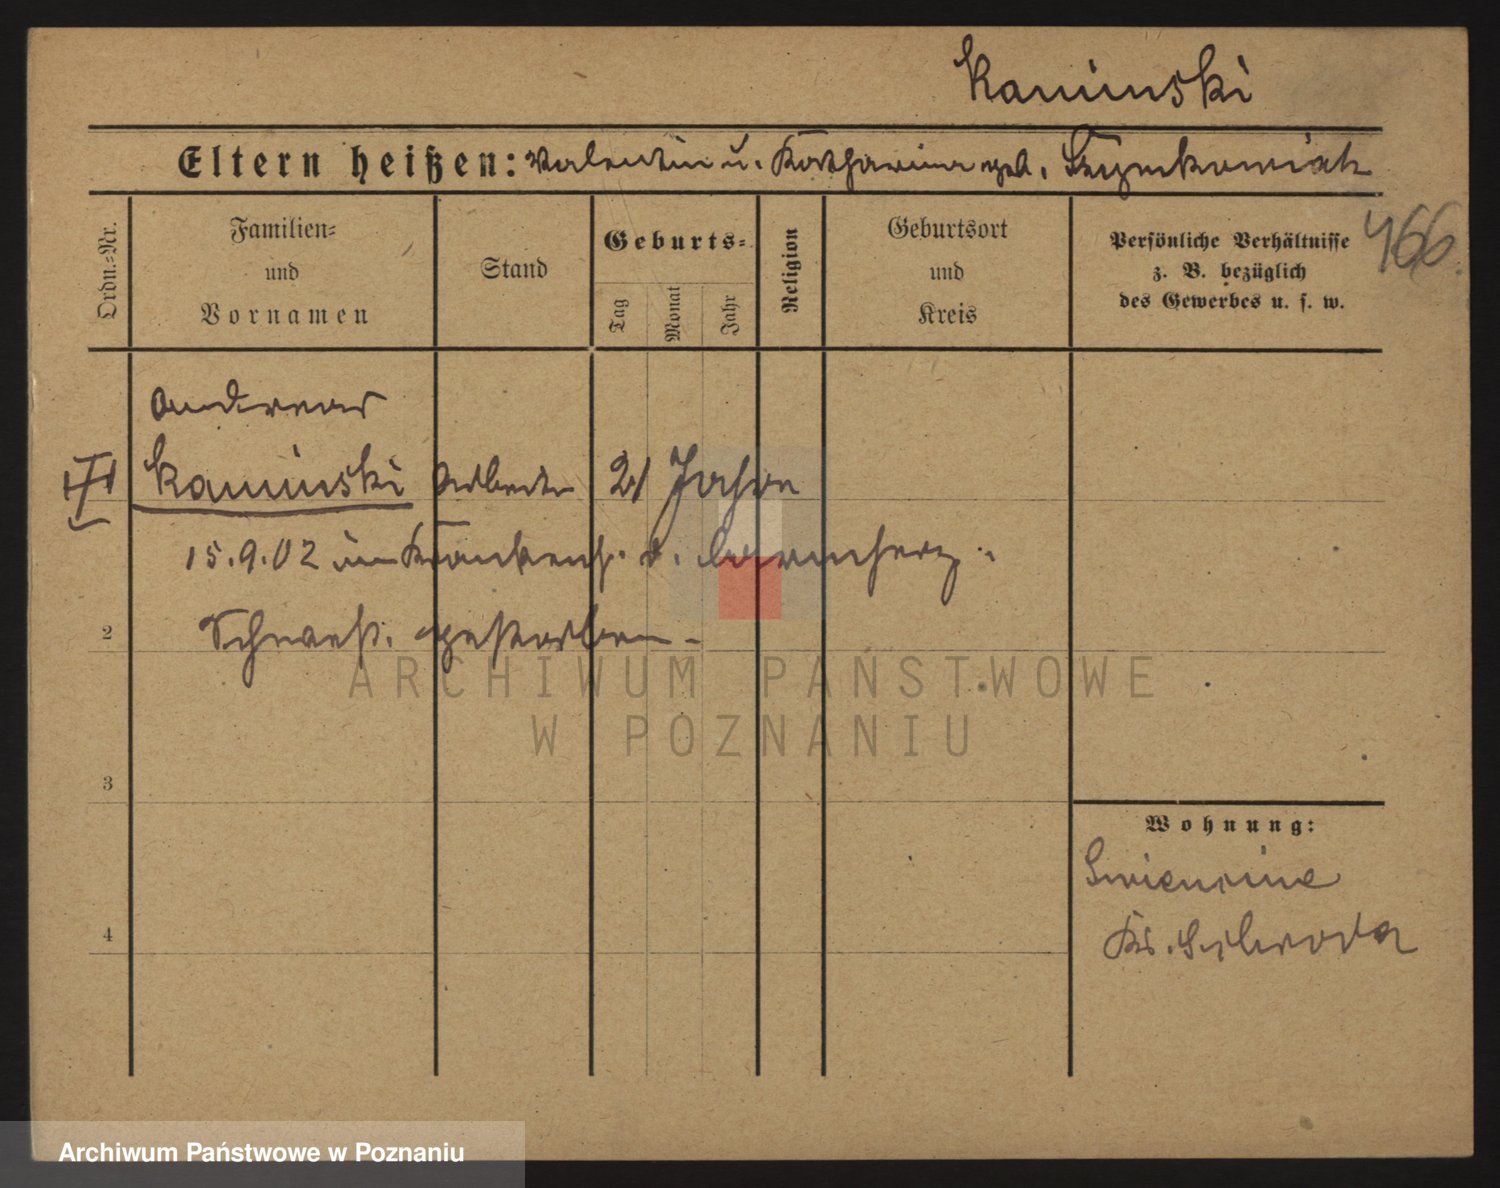 Kaminski
Eltern heißen: Valentin u. Katharina geb.
466
Ordn.=Nr.
Familien=
und
Vornamen
Stand
Geburts=
Tag
Monat
Jahr
Religion
Geburtsort
und
Kreis
Persönliche Verhältnisse
z. B. bezüglich
des Gewerbes u. s. w.
Andreas
Kaminski Arbeiter 21 Jahre
15.9.02 im Krankenh. d. barmherz.
Schwest. gestorben -
2
ARCHIWUM PAŃSTWOWE
W POZNANIU
3
Wohnung:
4
Ks. Schroda
Archiwum Państwowe w Poznaniu